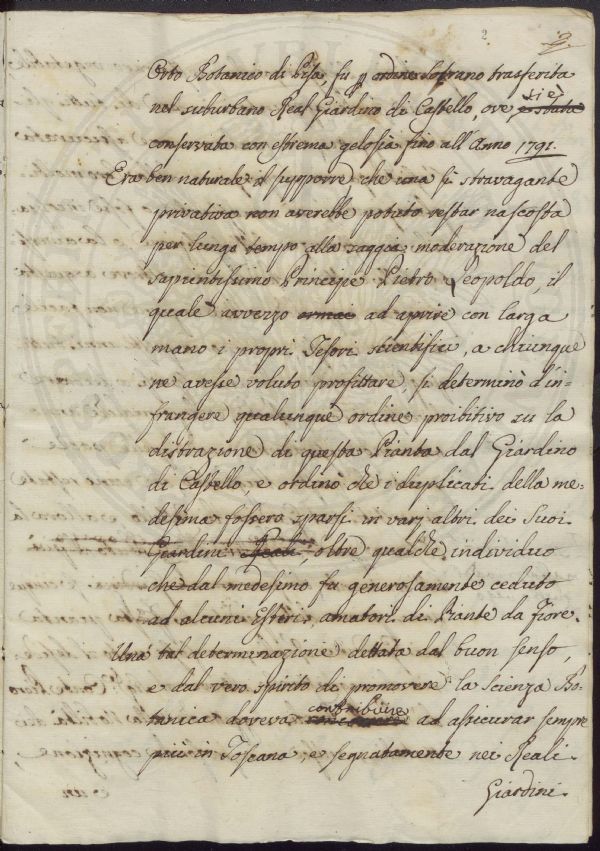 2
Orto Botanico di Pisa, fu p ordine Sovrano trasferita
nel suburbano Real Giardino di Castello, ove si è
conservata con estrema gelosia fino all'Anno 1791.
Era ben naturale il supporre che una sì stravagante
privativa non averebbe potuto restar nascosta
per lungo tempo alla saggia moderazione del
sapientissimo Principe Pietro Leopoldo, il
quale avvezzo ormai ad aprire con larga
mano i propri Tesori scientifici, a chiunque
ne avesse voluto profittare, si determinò d'in-
frangere qualunque ordine proibitivo su la
distrazione di questa Pianta dal Giardino
di Castello, e ordinò che i duplicati della me-
desima fossero sparsi in varj altri dei Suoi
Giardini Reali, oltre qualche individuo
che dal medesimo fu generosamente ceduto
ad alcuni Esteri, amatori di Piante da Fiore.
Una tal determinazione dettata dal buon senso,
e dal vero spirito di promovere la scienza Bo-
tanica doveva contribuire ad assicurar sempre
più in Toscana, e segnatamente nei Reali
Giardini